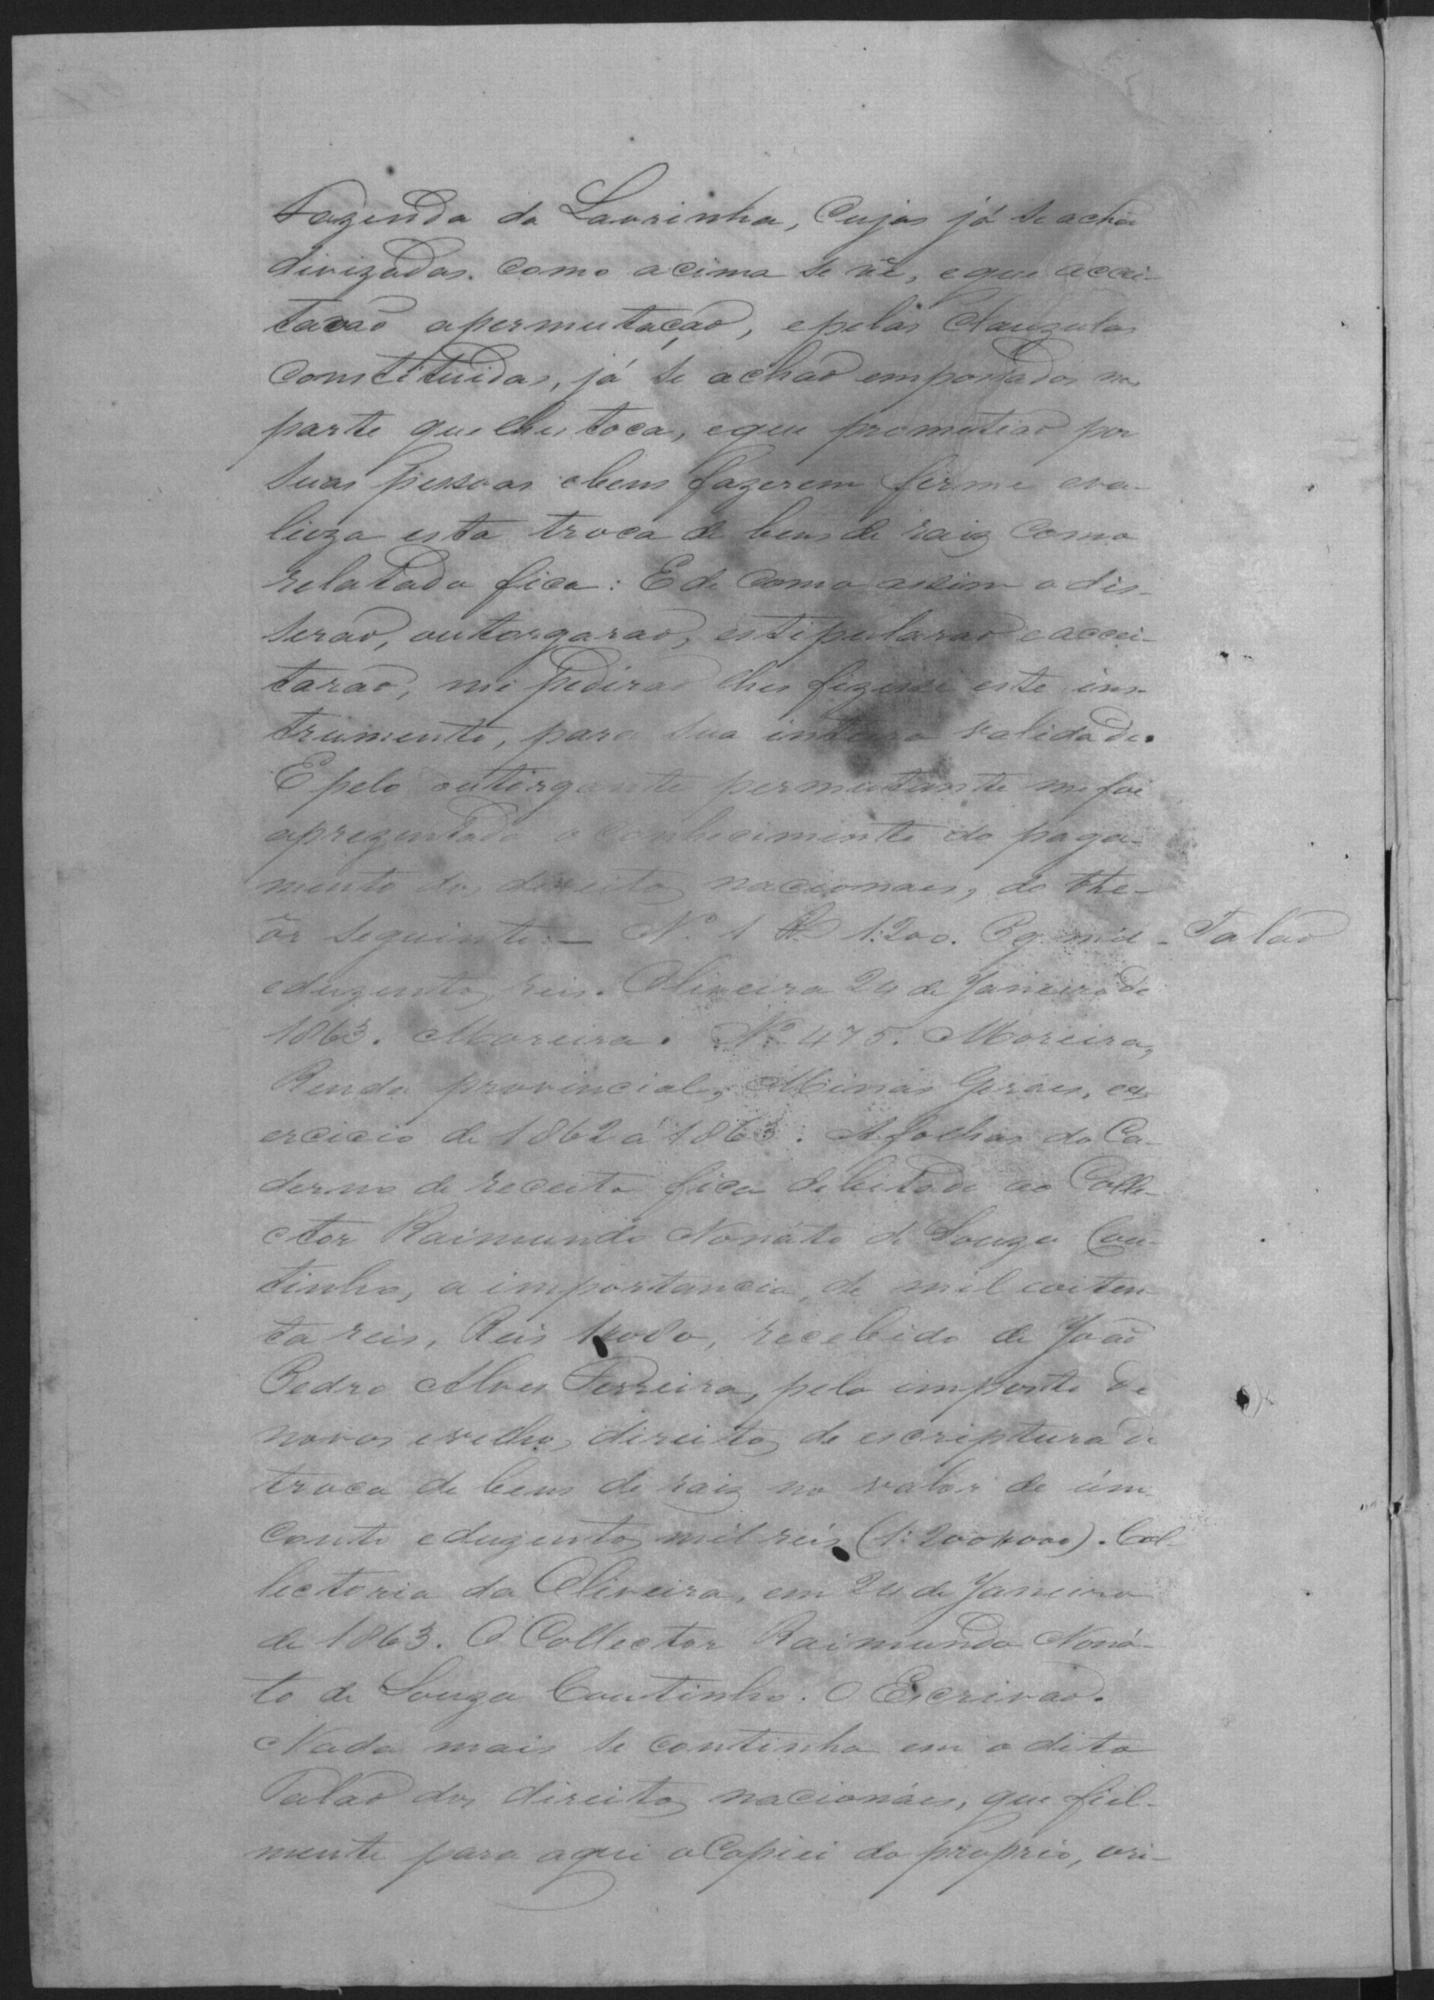 Fazenda da Lavrinha, Cujas já se acha
divizadas. como acima se vê, eque accei-
tavaõ apermutaçaõ, epelas Clauzulas
Constituidas, já se achaõ empossados na
parte que lhes toca, eque prometiaõ por
suas pessoas ebens fazerem firme eva-
lioza esta troca de bens de raiz como
relatado fica: E de como assim o dis-
seraõ, outorgaraõ, estipularaõ eaccei-
taraõ, me pediraõ lhes fizesse este ins-
trumento, para sua inteira validade.
E pelo outorgante permutante me foi
aprezentado o conhecimento do paga-
mento dos direitos nacionaes, do the-
ôr seguinte: — Nº 1 R 1:200. Pg. mil
Talaõ
eduzentos reis. Oliveira 24 de Janeiro de
1863. Moreira. Nº 475. Moreira,
Renda provincial, Minas Geraes, ex
ercicio de 1862 á 1863. Afolhas do Ca-
derno de receita fica debitado ao Colle-
ctor Raimundo Nonáto de Souza Cou-
tinho, a importancia de mil eoiten-
ta reis, Reis 1$080, recebido de Joaõ
Pedro Alves Ferreira, pelo importe de
novos evelhos direitos de escriptura de
troca de bens de raiz no valor de úm
conto eduzentos mil reis (1:200$000). Col-
lectoria da Oliveira, em 24 de Janeiro
de 1863. O Collector Raimundo Noná-
to de Souza Coutinho. O Escrivaõ.
Nada mais se continha em o dito
Talaõ dos direitos nacionáes, que fiel-
mente para aqui o Copiei do proprio, ori-